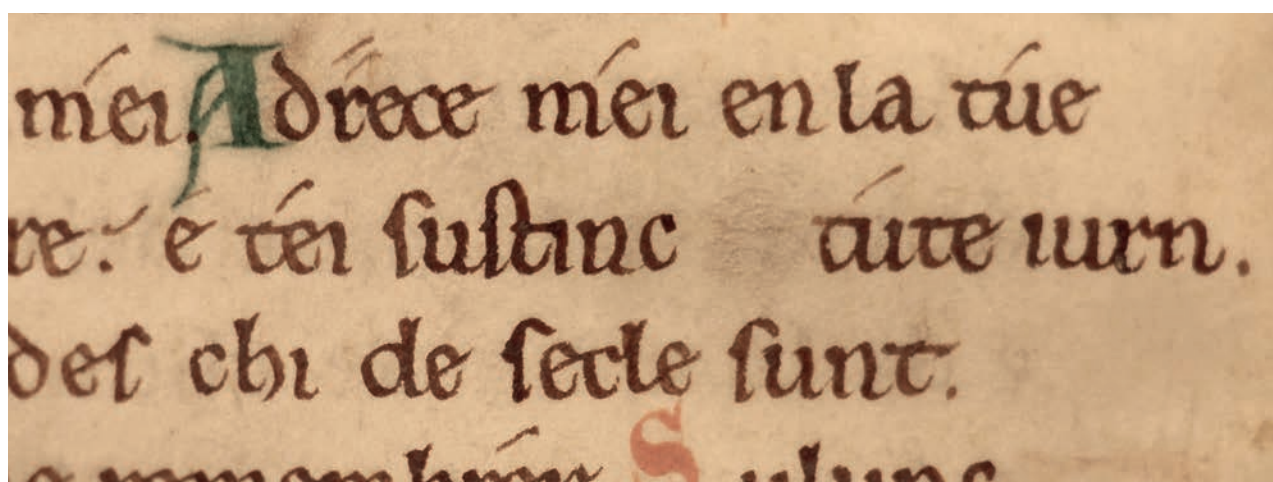 méi. Adrece méi en la túe
re. é téi sustinc túte iurn.
des chi de secle sunt.